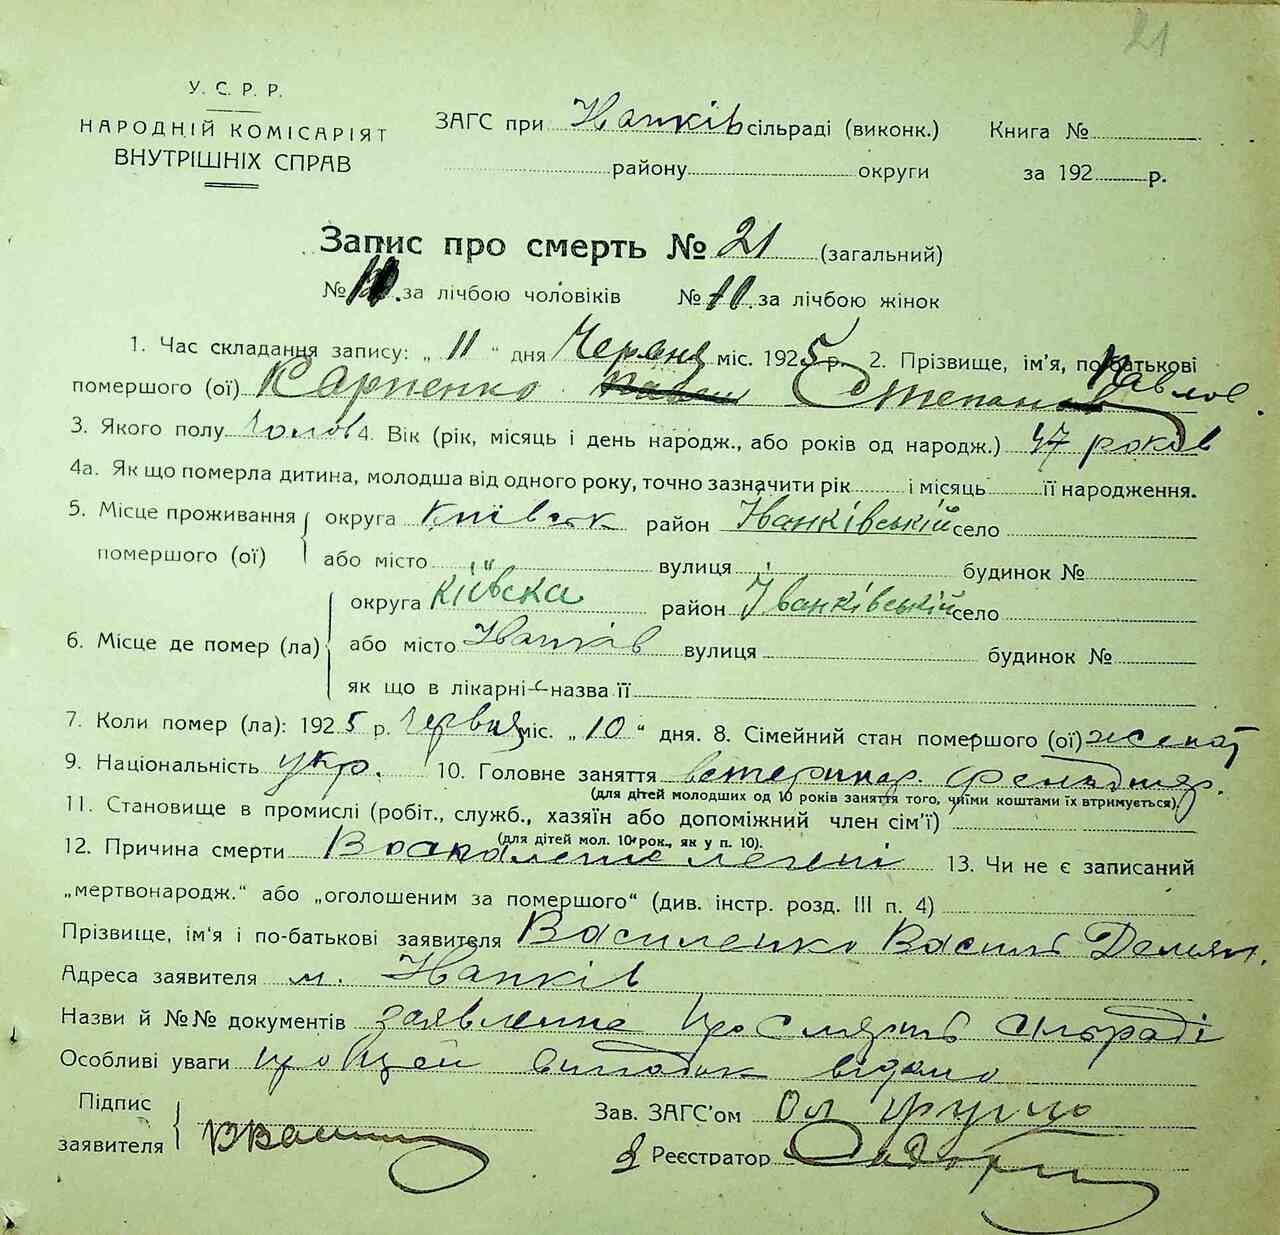 21
У. С. Р. Р.
НАРОДНІЙ КОМІСАРІЯТ
ВНУТРІШНІХ СПРАВ
ЗАГС при Іванків сільраді (виконк.) Книга №
району округи за 192 р.
Запис про смерть № 21 (загальний)
№ за лічбою чоловіків № за лічбою жінок
1. Час складання запису: „ 11 “ дня Червня міс. 1925 р. 2. Прізвище, ім'я, по-батькові
помершого (ої) Карпенко Степан Павлов.
3. Якого полу Чолов 4. Вік (рік, місяць і день народж., або років од народж.) 47 років
4а. Як що померла дитина, молодша від одного року, точно зазначити рік і місяць її народження.
5. Місце проживання округа Київськ район Іванківській село
помершого (ої) або місто вулиця будинок №
округа Київска район Іванківській село
6. Місце де помер (ла) або місто Іванків вулиця будинок №
як що в лікарні – назва її
7. Коли помер (ла): 1925 р. Червня міс. „ 10 “ дня. 8. Сімейний стан помершого (ої) женат
9. Національність укр. 10. Головне заняття ветеринар. фельдшер.
(для дітей молодших од 10 років заняття того, чиїми коштами їх втримується).
11. Становище в промислі (робіт., служб., хазяїн або допоміжний член сім'ї)
(для дітей мол. 10 рок., як у п. 10).
12. Причина смерти Воспаление легені 13. Чи не є записаний
„мертвонародж.“ або „оголошеним за помершого“ (див. інстр. розд. III п. 4)
Прізвище, ім'я і по-батькові заявителя Василенко Василь Демян.
Адреса заявителя м. Іванків
Назви й №№ документів заявление про смерть сільраді
Особливі уваги про цей випадок відомо
Підпис
заявителя
Зав. ЗАГС'ом
Реєстратор